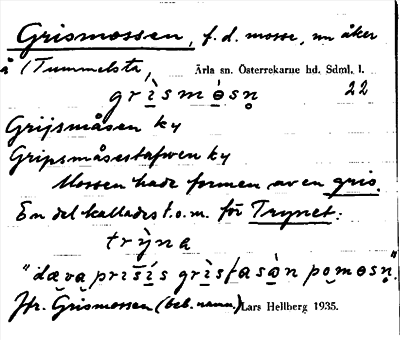 Grismossen, f. d. mosse, nu åker
å (Tummelsta, Ärla sn. Österrekarne hd. Sdml, l.
grìsmò̩sn̥ 22
Grijsmåsen ky
Gripsmåsestafwen ky
Mossen hade formen av en gris.
En del kallades t. o. m. för Trynet:
trỳna
"dæva prisís grìsfasòn po mosn̥."
Jfr. Grismossen (beb.namn.) Lars Hellberg 1935.